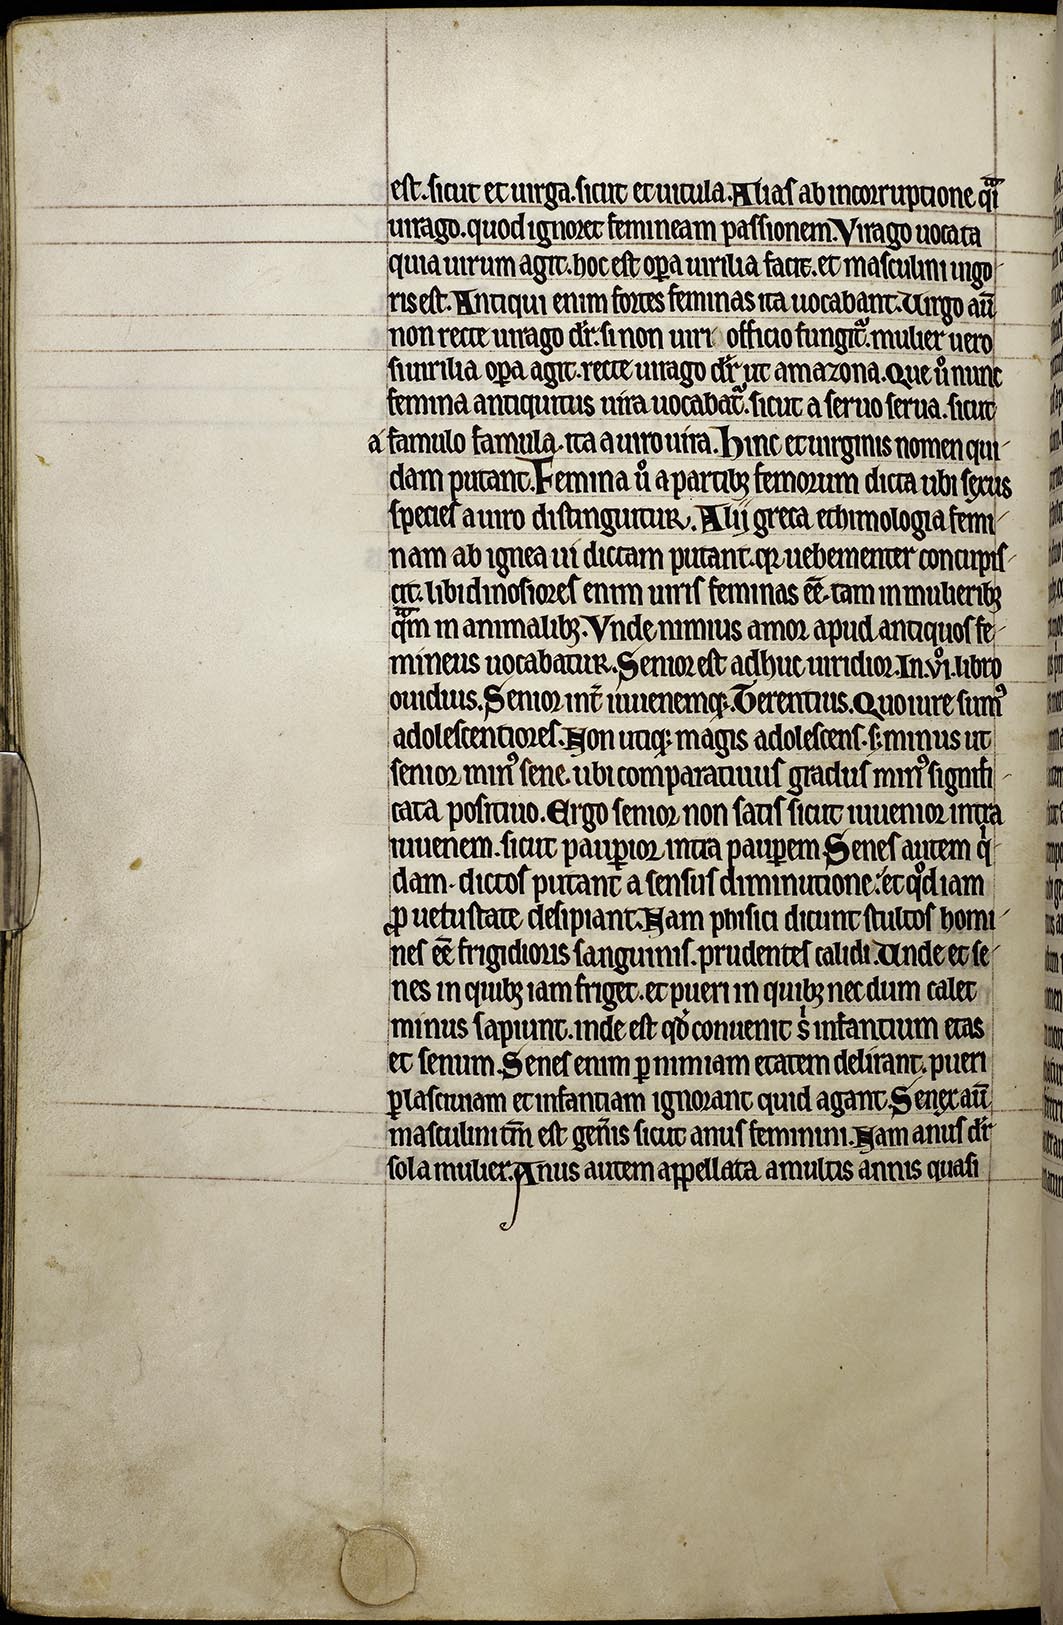 est. sicut et uirga. sicut et uitula. Alias ab incorruptione qᵃi
uirago. quod ignoret femineam passionem. Virago uocata
quia uirum agit. hoc est oꝑa uirilia facit. et masculini uigo
ris est. Antiqui enim fortes feminas ita uocabant. Uirgo aū
non recte uirago dr̄. si non uiri officio fungit᷑. mulier uero
si uirilia oꝑa agit. recte uirago dr̄ ut amazona. Que uͦ nunc
femina antiquitus uira uocabat᷑. sicut a seruo serua. sicut
a famulo famula. ita a uiro uira. Hinc et uirginis nomen qui
dam putant. Femina uͦ a partibꝫ femorum dicta ubi sexus
species a uiro distinguitur. Alij greca ethimologia femi
nam ab ignea ui dictam putant. qꝛ uehementer concupis
cit. libidinosiores enim uiris feminas eē. tam in mulieribꝫ
qᵃm in animalibꝫ. Vnde nimius amor apud antiquos fe
mineus uocabatur. Senior est adhuc uiridior. In .viͦ. libro
ouidius. Senior int̄ iuuenemqꝫ. Terentius. Quo iure sumꝰ
adolescentiores. Non utiqꝫ magis adolescens. sꝫ minus ut
senior minꝰ sene. ubi comparatiuus gradus minꝰ signifi
cata positiuo. Ergo senior non satis sicut iuuenior intra
iuuenem. sicut pauꝑior intra pauꝑem. Senes autem qⁱ
dam. dictos putant a sensus diminutione. et qͦd iam
ꝓ uetustate desipiant. Nam phisici dicunt stultos homi
nes eē frigidioris sanguinis. prudentes calidi. Unde et se
nes in quibꝫ iam friget. et pueri in quibꝫ nec dum calet
minus sapiunt. inde est qd̄ conuenit sⁱ infantium etas
et senum. Senes enim ꝑ nimiam etatem delirant. pueri
ꝑ lasciuiam et infantiam ignorant quid agant. Senex aū
masculini tm̄ est geñis sicut anus feminini. Nam anus dr̄
sola mulier. Anus autem appellata a multis annis quasi